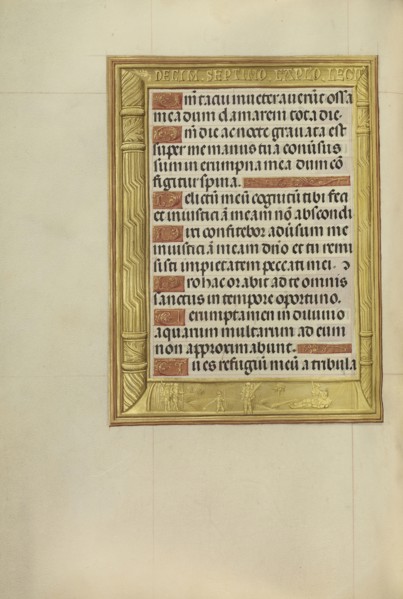 DECIM · SEPTIMO · CAPLO · LEGI
Qm̄ tacui inveteraverūt ossa
mea dum clamarem tota die.
Qm̄ die ac nocte gravata est
super me manus tua conversus
sum in erumpna mea dum cō
figitur spina.
Delictū meū cognitū tibi feci
et iniusticiā meam nō abscondi
Dixi confitebor adversum me
iniusticiā meam dn̄o et tu remi
sisti impietatem peccati mei.
Pro hac orabit ad te omnis
sanctus in tempore oportuno.
Verumptamen in diluvio
aquarum multarum ad eum
non approximabunt.
Tu es refugiū meū a tribula